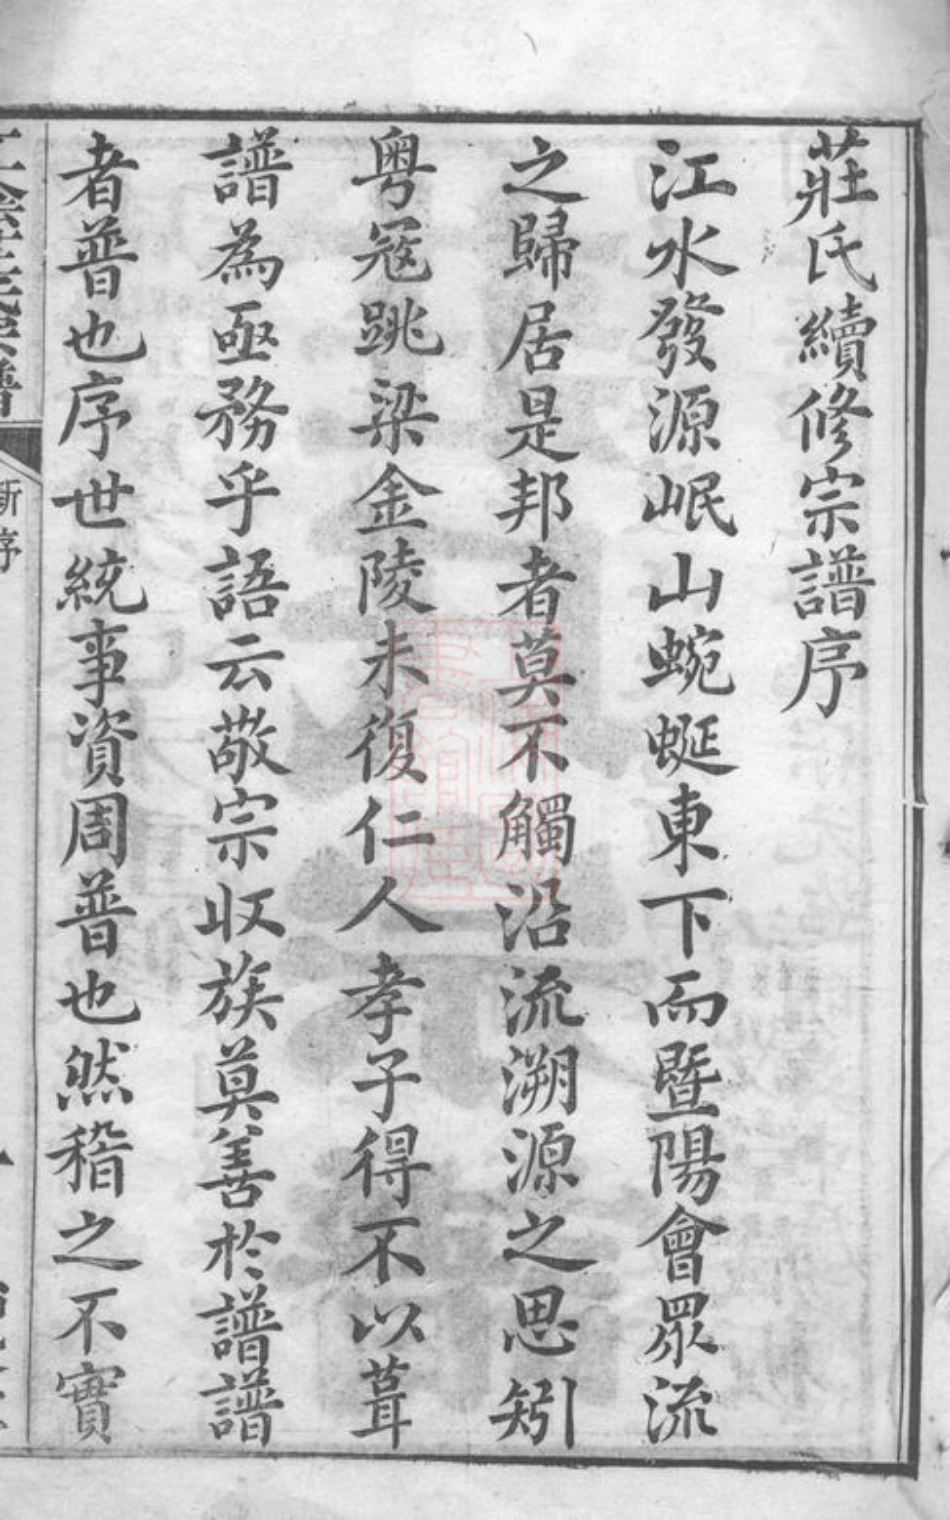 莊氏續修宗譜序
江水發源岷山蜿蜒東下而暨陽會眾流
之歸居是邦者莫不觸沿流溯源之思矧
粵冦跳梁金陵未復仁人孝子得不以葺
譜為亟務乎語云敬宗收族莫善於譜譜
者普也序世統事資周普也然稽之不實
新序